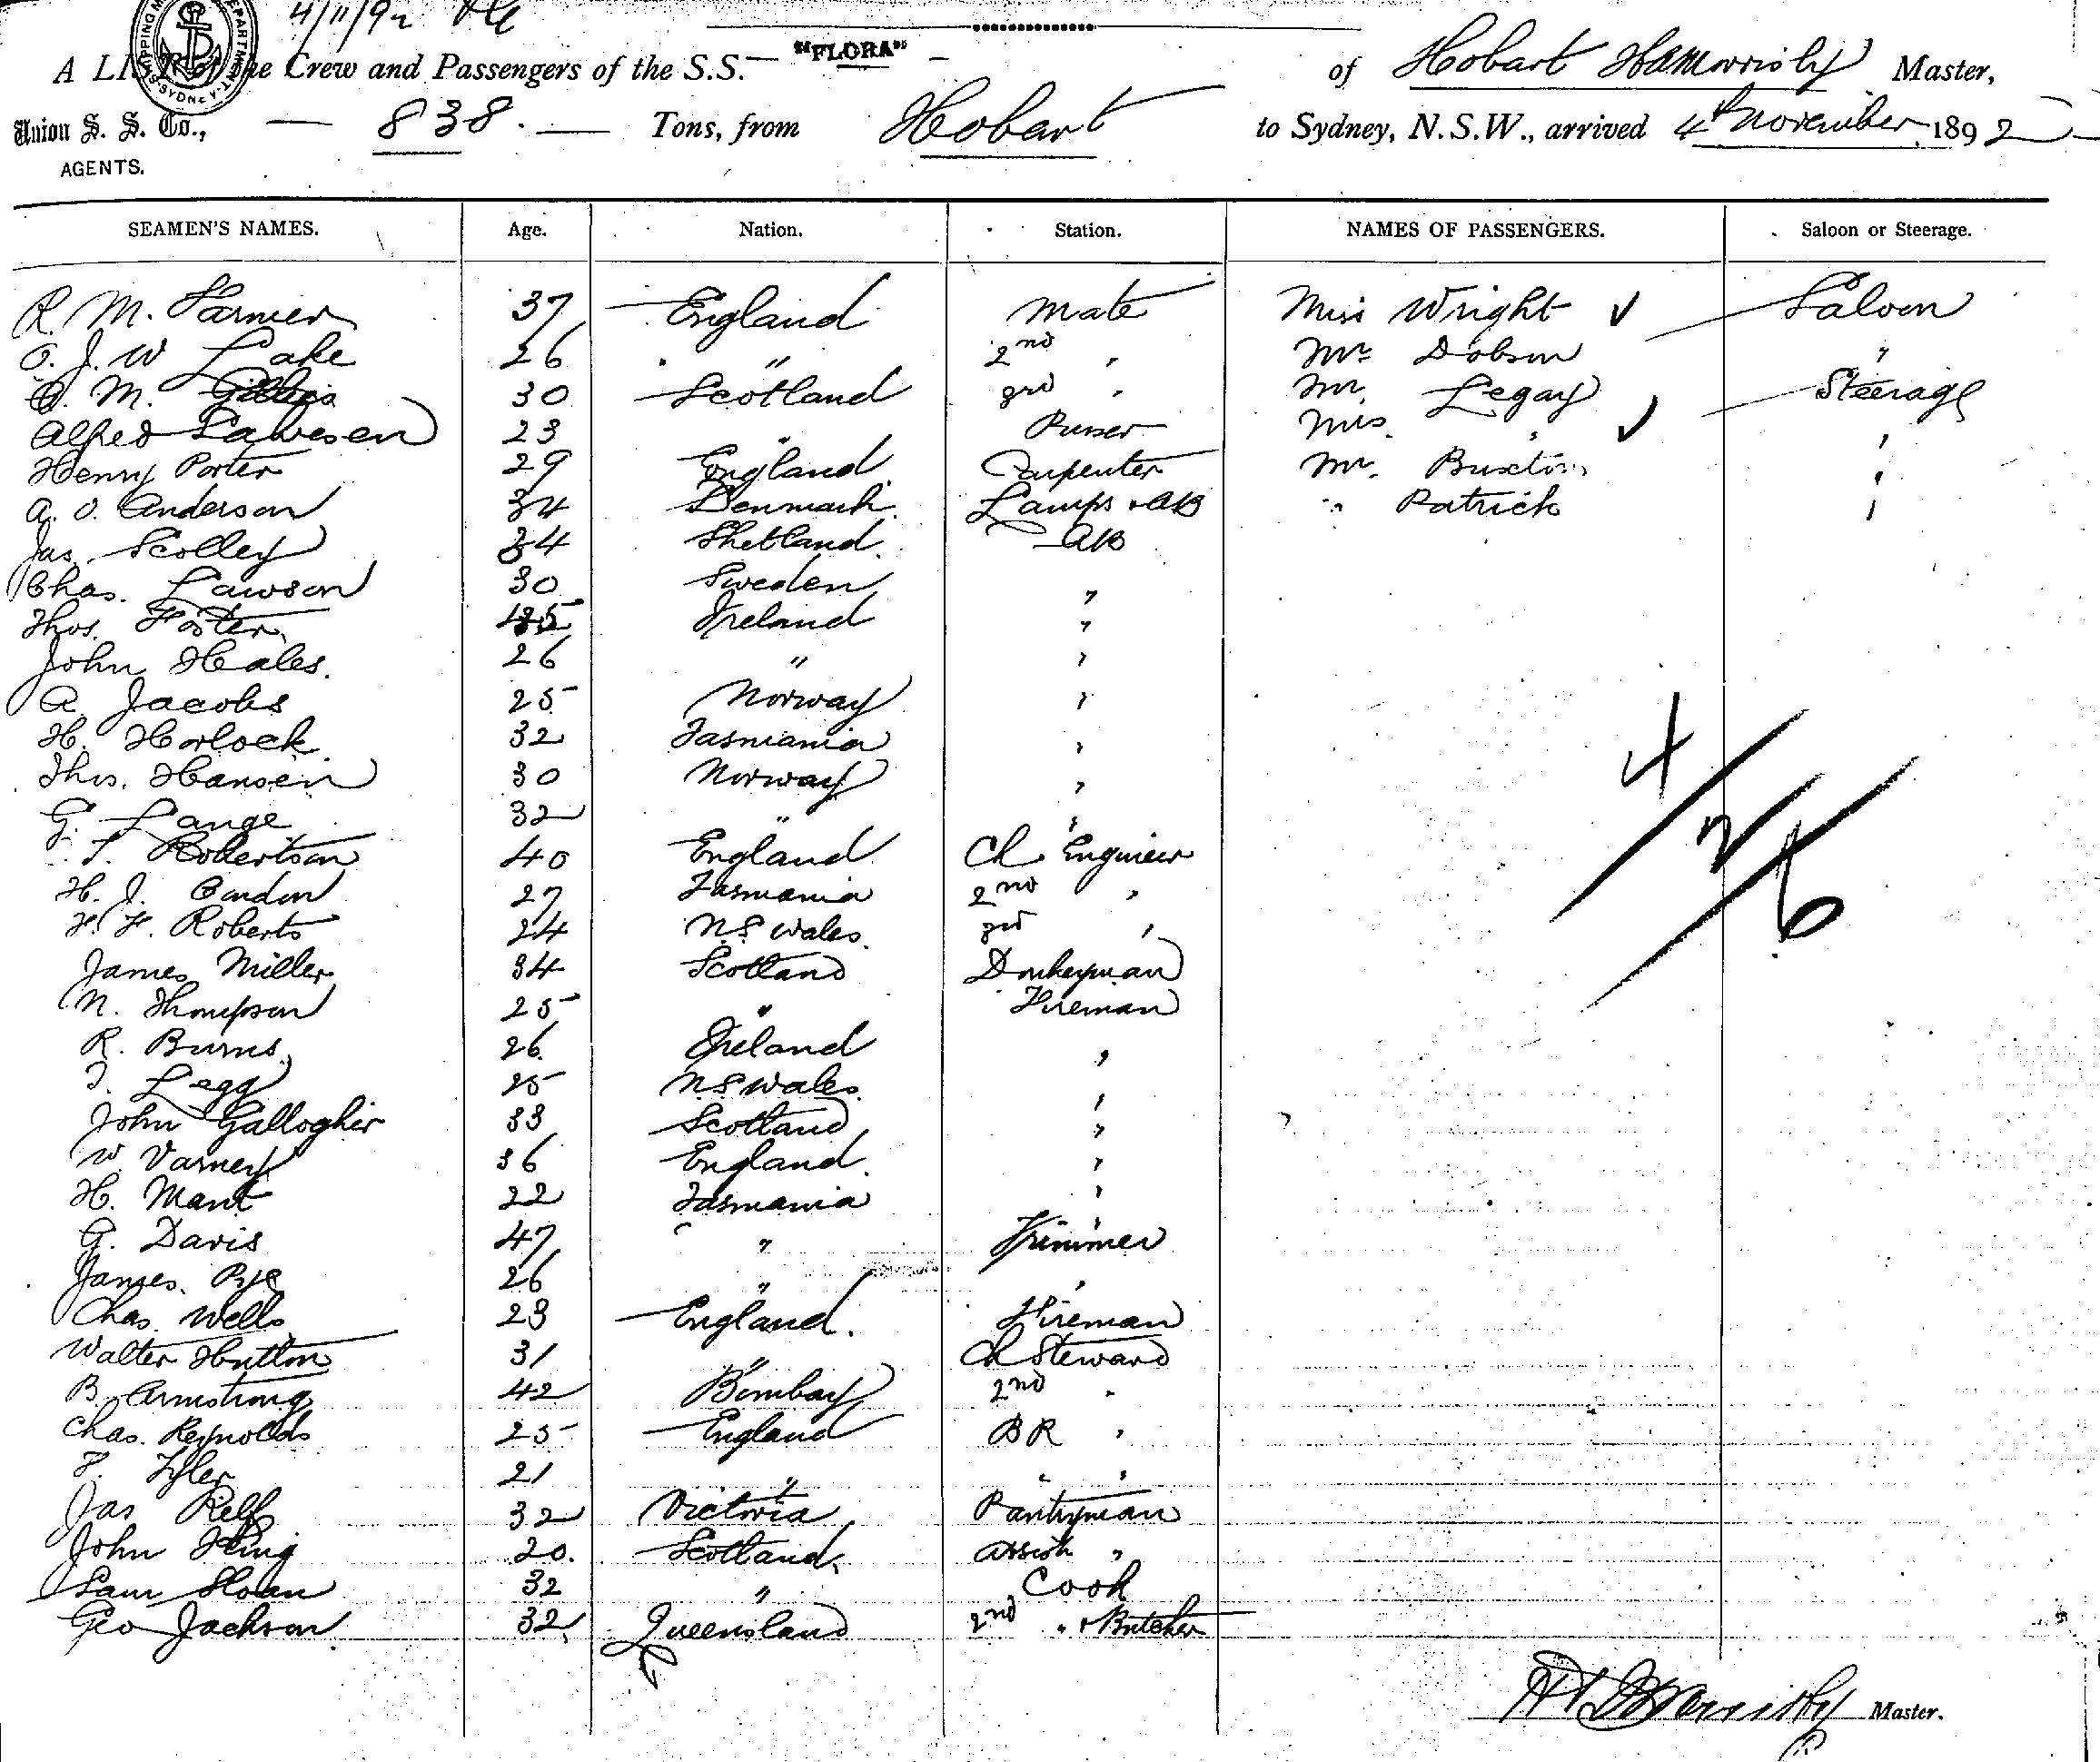 4/11/92
SHIPPING MASTER'S DEPARTMENT SYDNEY
A LIST of the Crew and Passengers of the S.S. "FLORA" of Hobart Master,
Union S. S. Co., 838. Tons, from Hobart to Sydney, N.S.W., arrived 4th November 1892
AGENTS.
SEAMEN'S NAMES. Age. Nation. Station. NAMES OF PASSENGERS. Saloon or Steerage.
R. M. Farmer 37 England Mate Miss Wright ✓ Saloon
O. J. W Lake 26 " 2nd " Mr Dobson "
M. Gillies 30 Scotland 3rd " Mr. Legay Steerage
Alfred 23 " Purser Mrs. " ✓ "
Henry Porter 29 England Carpenter Mr. Buxton "
A. O. Anderson 34 Denmark Lamps & AB " Patrick "
Jas. Scolley 34 Shetland AB
Chas. Lawson 30 Sweden "
Thos. Foster Ireland "
John Heales. 26 " "
A. Jacobs 25 Norway "
H. Horlock 32 Tasmania "
Thos. Hansen 30 Norway "
G. Lange 32 " "
T. Robertson 40 England Ch. Engineer
H. J. 27 Tasmania 2nd "
F. Roberts 24 N.S Wales. 3rd "
James Miller 34 Scotland Donkeyman
N. Thompson 25 " Fireman
R. Burns 26 Ireland "
J. Legg 25 N.S Wales "
John Gallogher 33 Scotland "
W. Varney 36 England "
H. Mant 22 Tasmania "
G. Davis 47 " Trimmer
James. Pye 26 " "
Chas. Wells 23 England. Fireman
Walter Hutton 31 " Ch Steward
B. Armstrong 42 Bombay 2nd "
Chas. Reynolds 25 England BR "
F. Tyler 21 " " "
Jas Relf 32 Victoria Pantryman
John King 20. Scotland. Assist "
Sam Sloan 32 " Cook
Geo Jackson 32 Queensland 2nd " & Butcher
4/2/6
Master.